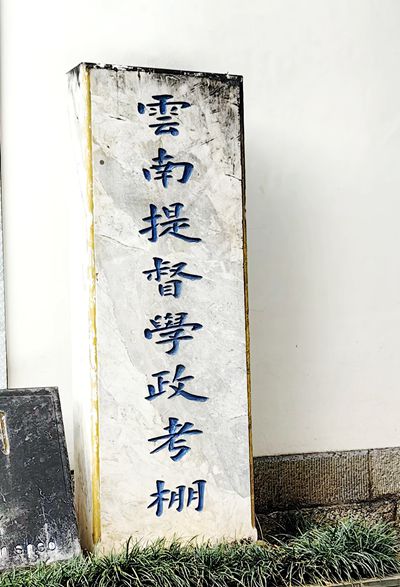 雲南提督學政考棚